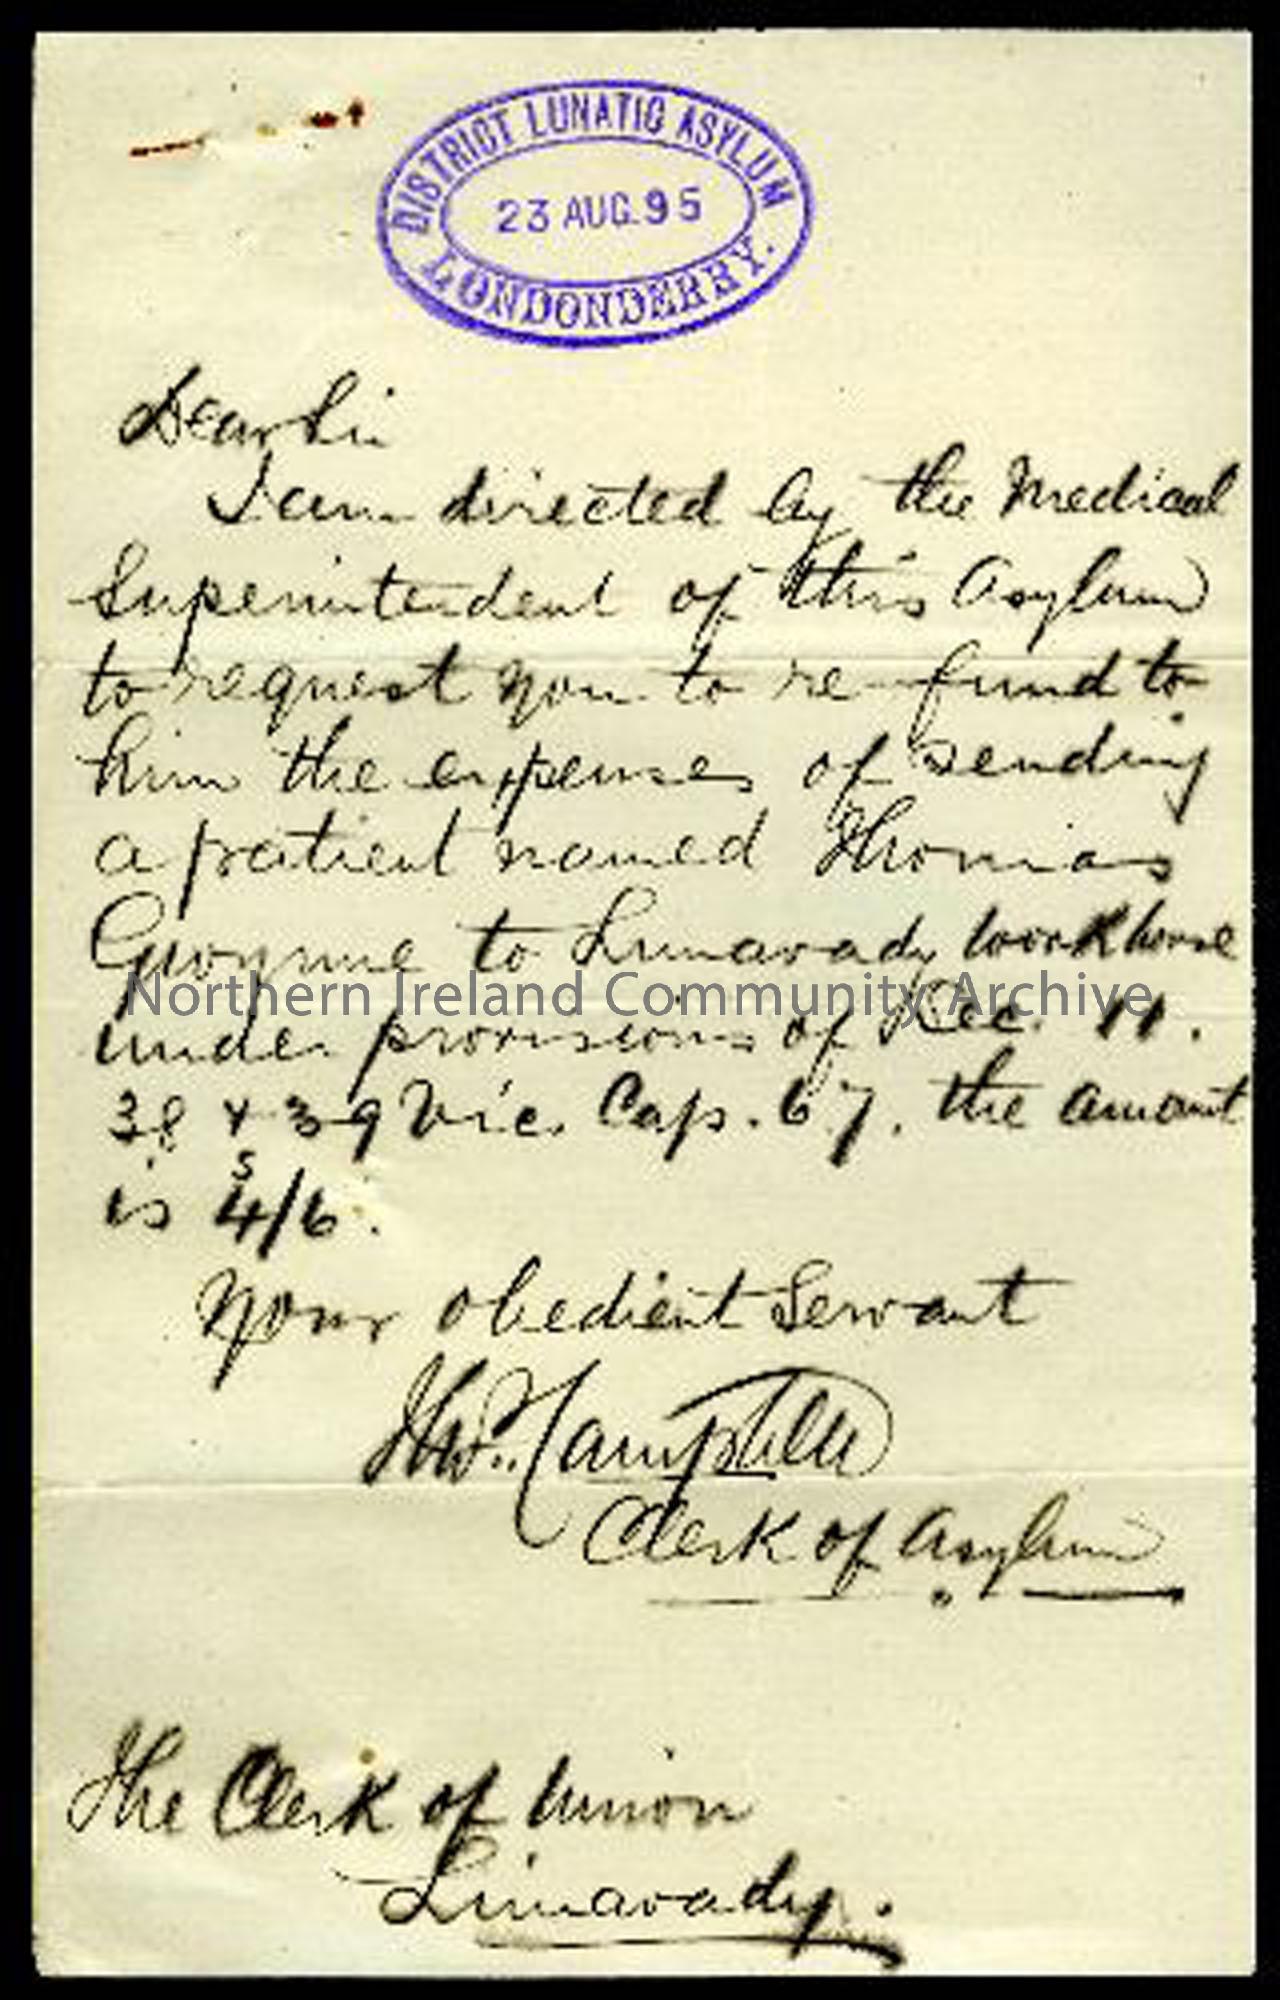 DISTRICT LUNATIC ASYLUM
23 AUG. 95
LONDONDERRY.
Dear Sir
I am directed by the Medical
Superintendent of this Asylum
to request you to re-fund to
him the expenses of sending
a patient named Thomas
Gwynne to Limavady Workhouse
Northern Ireland Community Archive
under provisions of Sec. 11.
38 & 39 Vic. Cap. 67. the amount
is 4s/6.
Your obedient Servant
Campbell
Clerk of Asylum
The Clerk of Union
Limavady.